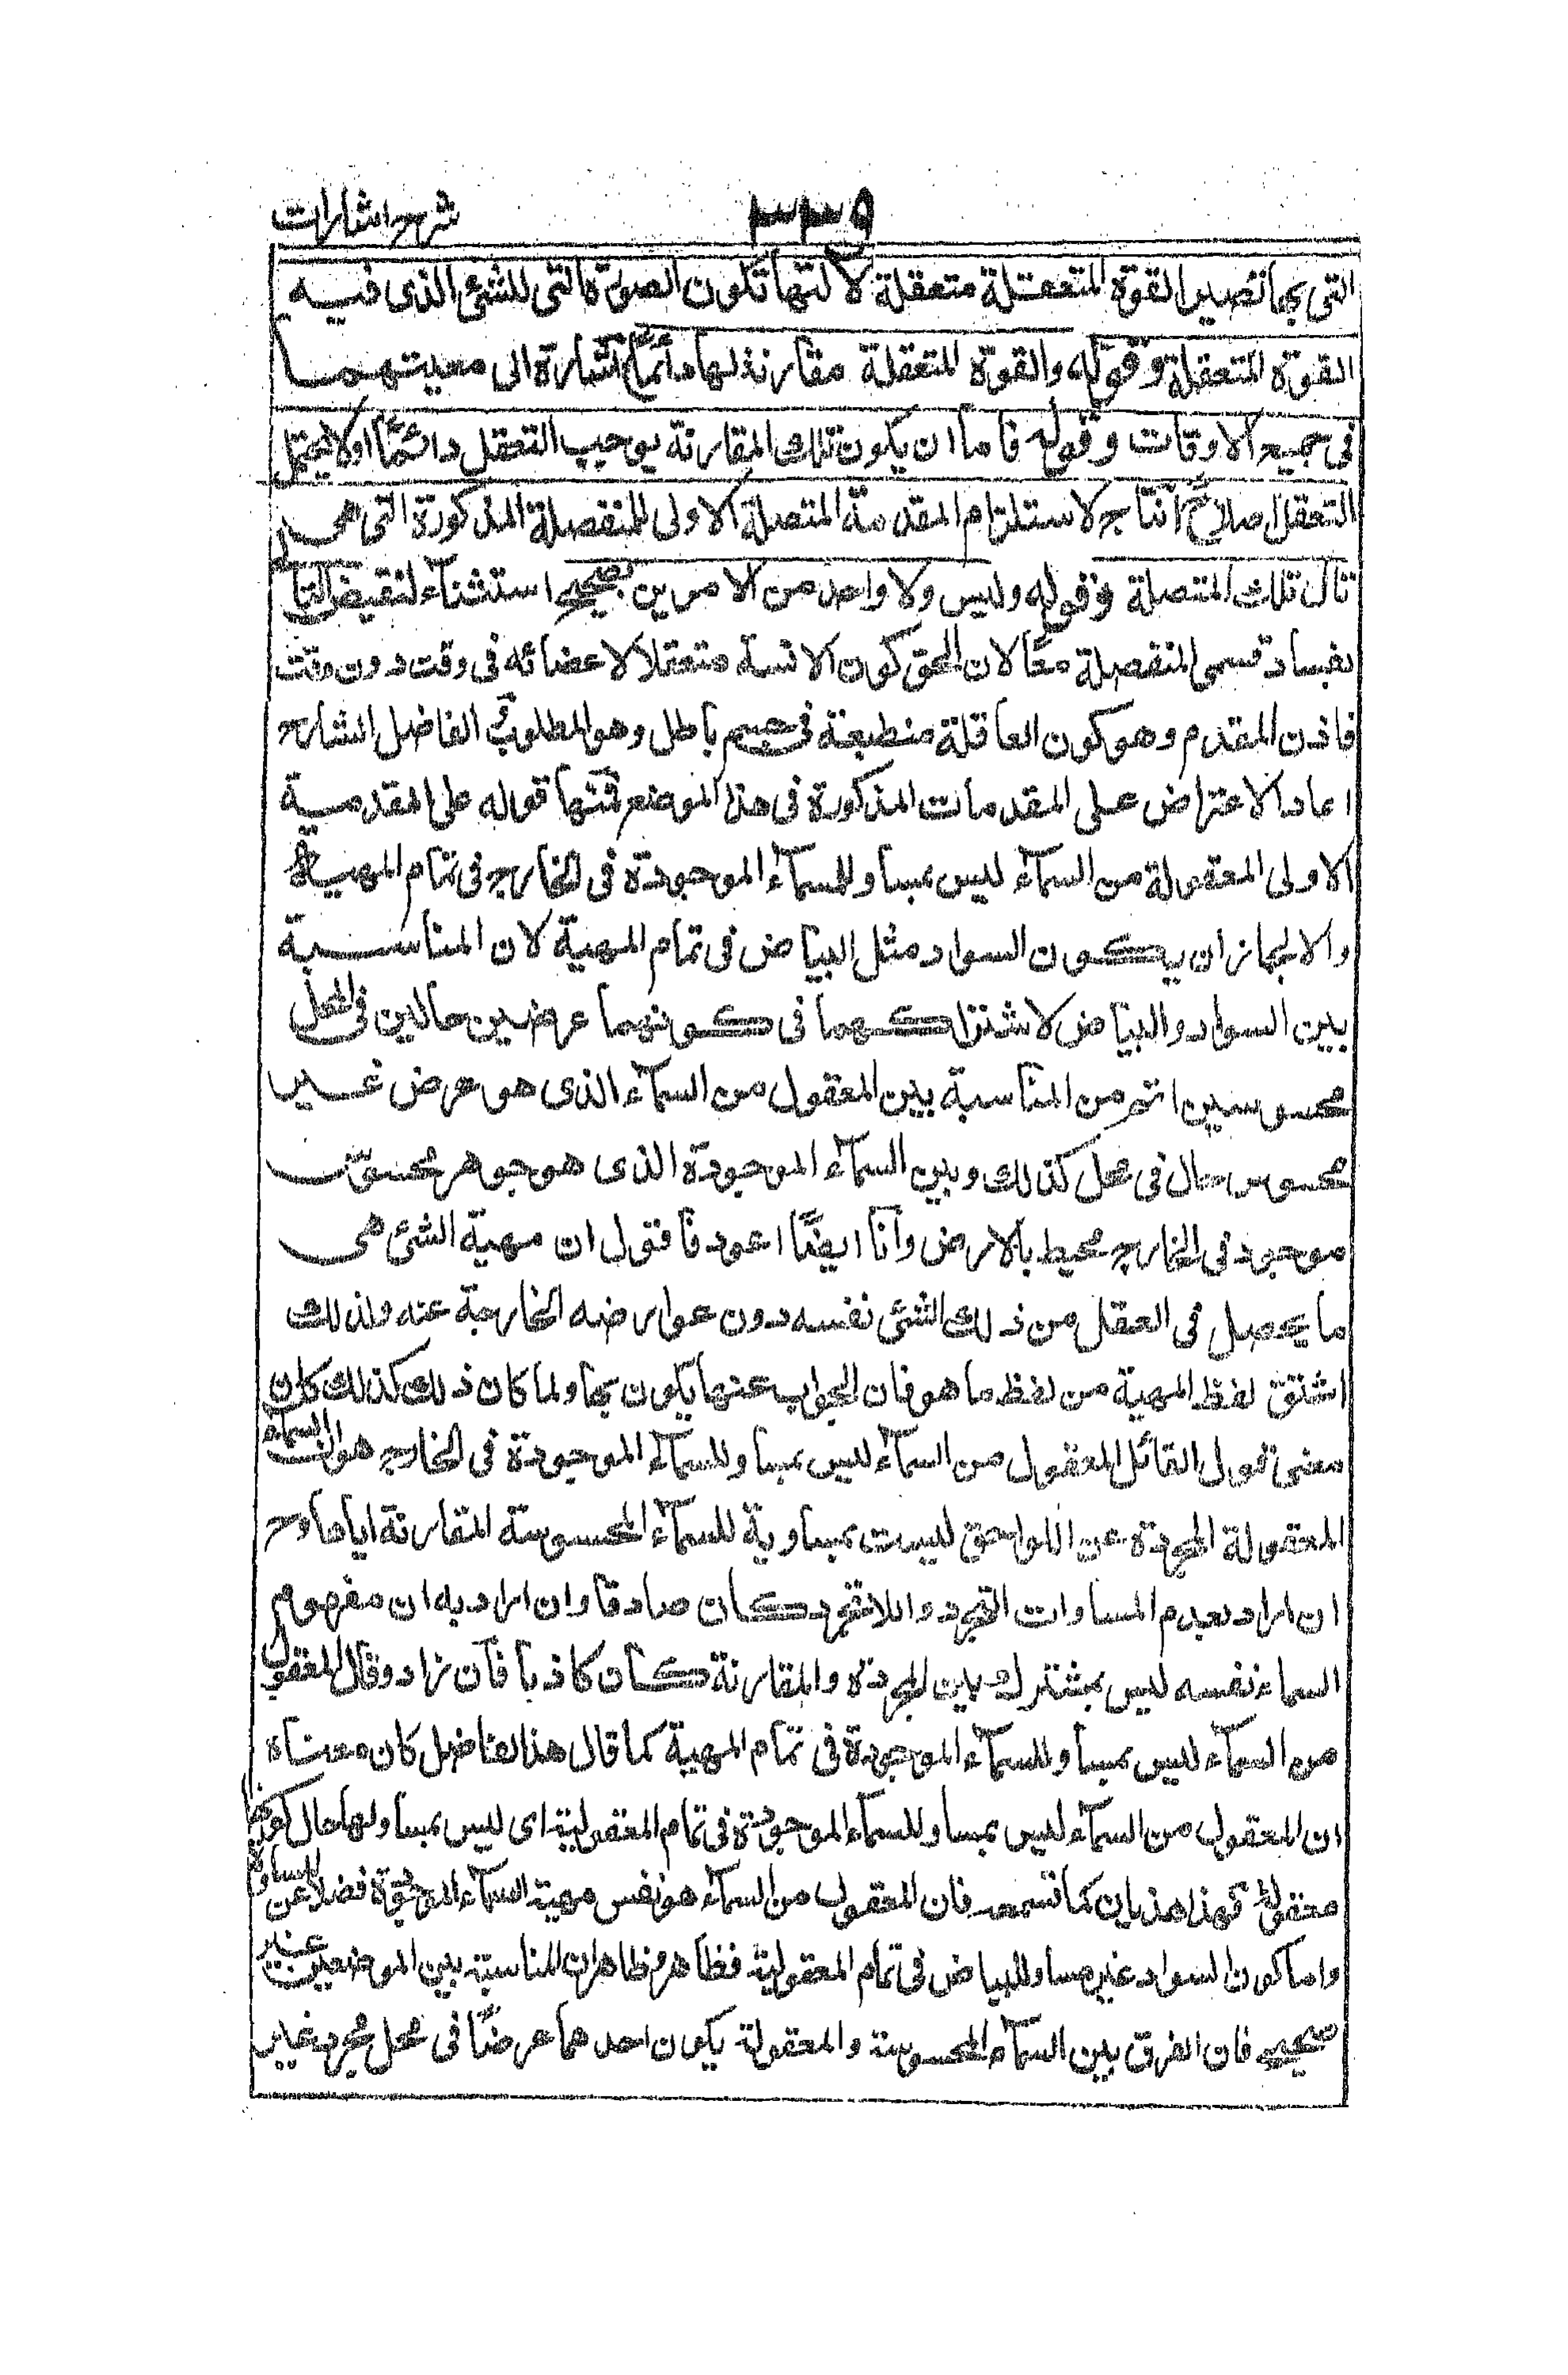 شرح اشارات
٣٣٩
التى بها تصير القوة المتعقلة متعقلة لالتها تكون الصورة التى للشئ الذى فيه
القوة المتعقلة وقوله والقوة المتعقلة مقارنة لها دائما اشارة الى معيتهما
فى جميع الاوقات وقوله فاما ان يكون تلك المقارنة يوجب التعقل دائما او لا يحتمل
التعقل اصلا انتاج لاستلزام المقدمة المتصلة الاولى للمنفصلة المذكورة التى هى
تال تلك المتصلة وقوله وليس ولا واحد من الامرين بصحيح استثناء لنقيض التالى
بفساد قسمى المنفصلة معا لان الحق كون الانسان متعقلا لاعضائه فى وقت دون وقت
فاذن المقدم وهو كون العاقلة منطبعة فى جسم باطل وهو المطلوب الفاضل الشارح
اعاد الاعتراض على المقدمات المذكورة فى هذا الموضع فمنها قوله على المقدمة
الاولى المعقولة من السماء ليس بمساو للسماء الموجودة فى الخارج فى تمام المهية
والا لجاز ان يكون السواد مثل البياض فى تمام المهية لان المناسبة
بين السواد والبياض لاشتراكهما فى كونهما عرضين حالين فى المحل
محسوسين اتم من المناسبة بين المعقول من السماء الذى هو عرض غير
محسوس حال فى محل كذلك وبين السماء الموجودة الذى هو جوهر محسوس
موجود فى الخارج محيط بالارض وانا ايضا اعود فاقول ان مهية الشئ هى
ما يحصل فى العقل من ذلك الشئ نفسه دون عوارضه الخارجة عنه ولذلك
اشتق لفظ المهية من لفظ ما هو فان الجواب عنها يكون بها ولما كان ذلك كذلك كان
معنى قول القائل المعقول من السماء ليس بمساو للسماء الموجودة فى الخارج هو ان السماء
المعقولة المجردة عن اللواحق ليست بمساوية للسماء المحسوسة المقارنة اياها وح
ان اراد بعدم المساوات التجرد واللاتجرد كان صادقا وان اراد به ان مفهوم
السماء نفسه ليس بمشترك بين المجردة والمقارنة كان كاذبا فان زاد وقال المعقول
من السماء ليس بمساو للسماء الموجودة فى تمام المهية كما قال هذا الفاضل كان معناه
ان المعقول من السماء ليس بمساو للسماء الموجودة فى تمام المعقولية اى ليس بمساو لها حال كونها
معقولة فهذا هذيان كما تسمعه فان المعقول من السماء هو نفس مهية السماء الموجودة فضلا عن المساواة
واما كون السواد غير مساو للبياض فى تمام المعقولية فظاهر وظاهر ان المناسبة بين الموضعين غير
صحيح فان الفرق بين السماء المحسوسة والمعقولة يكون احدهما عرضا فى محل مجرد غير